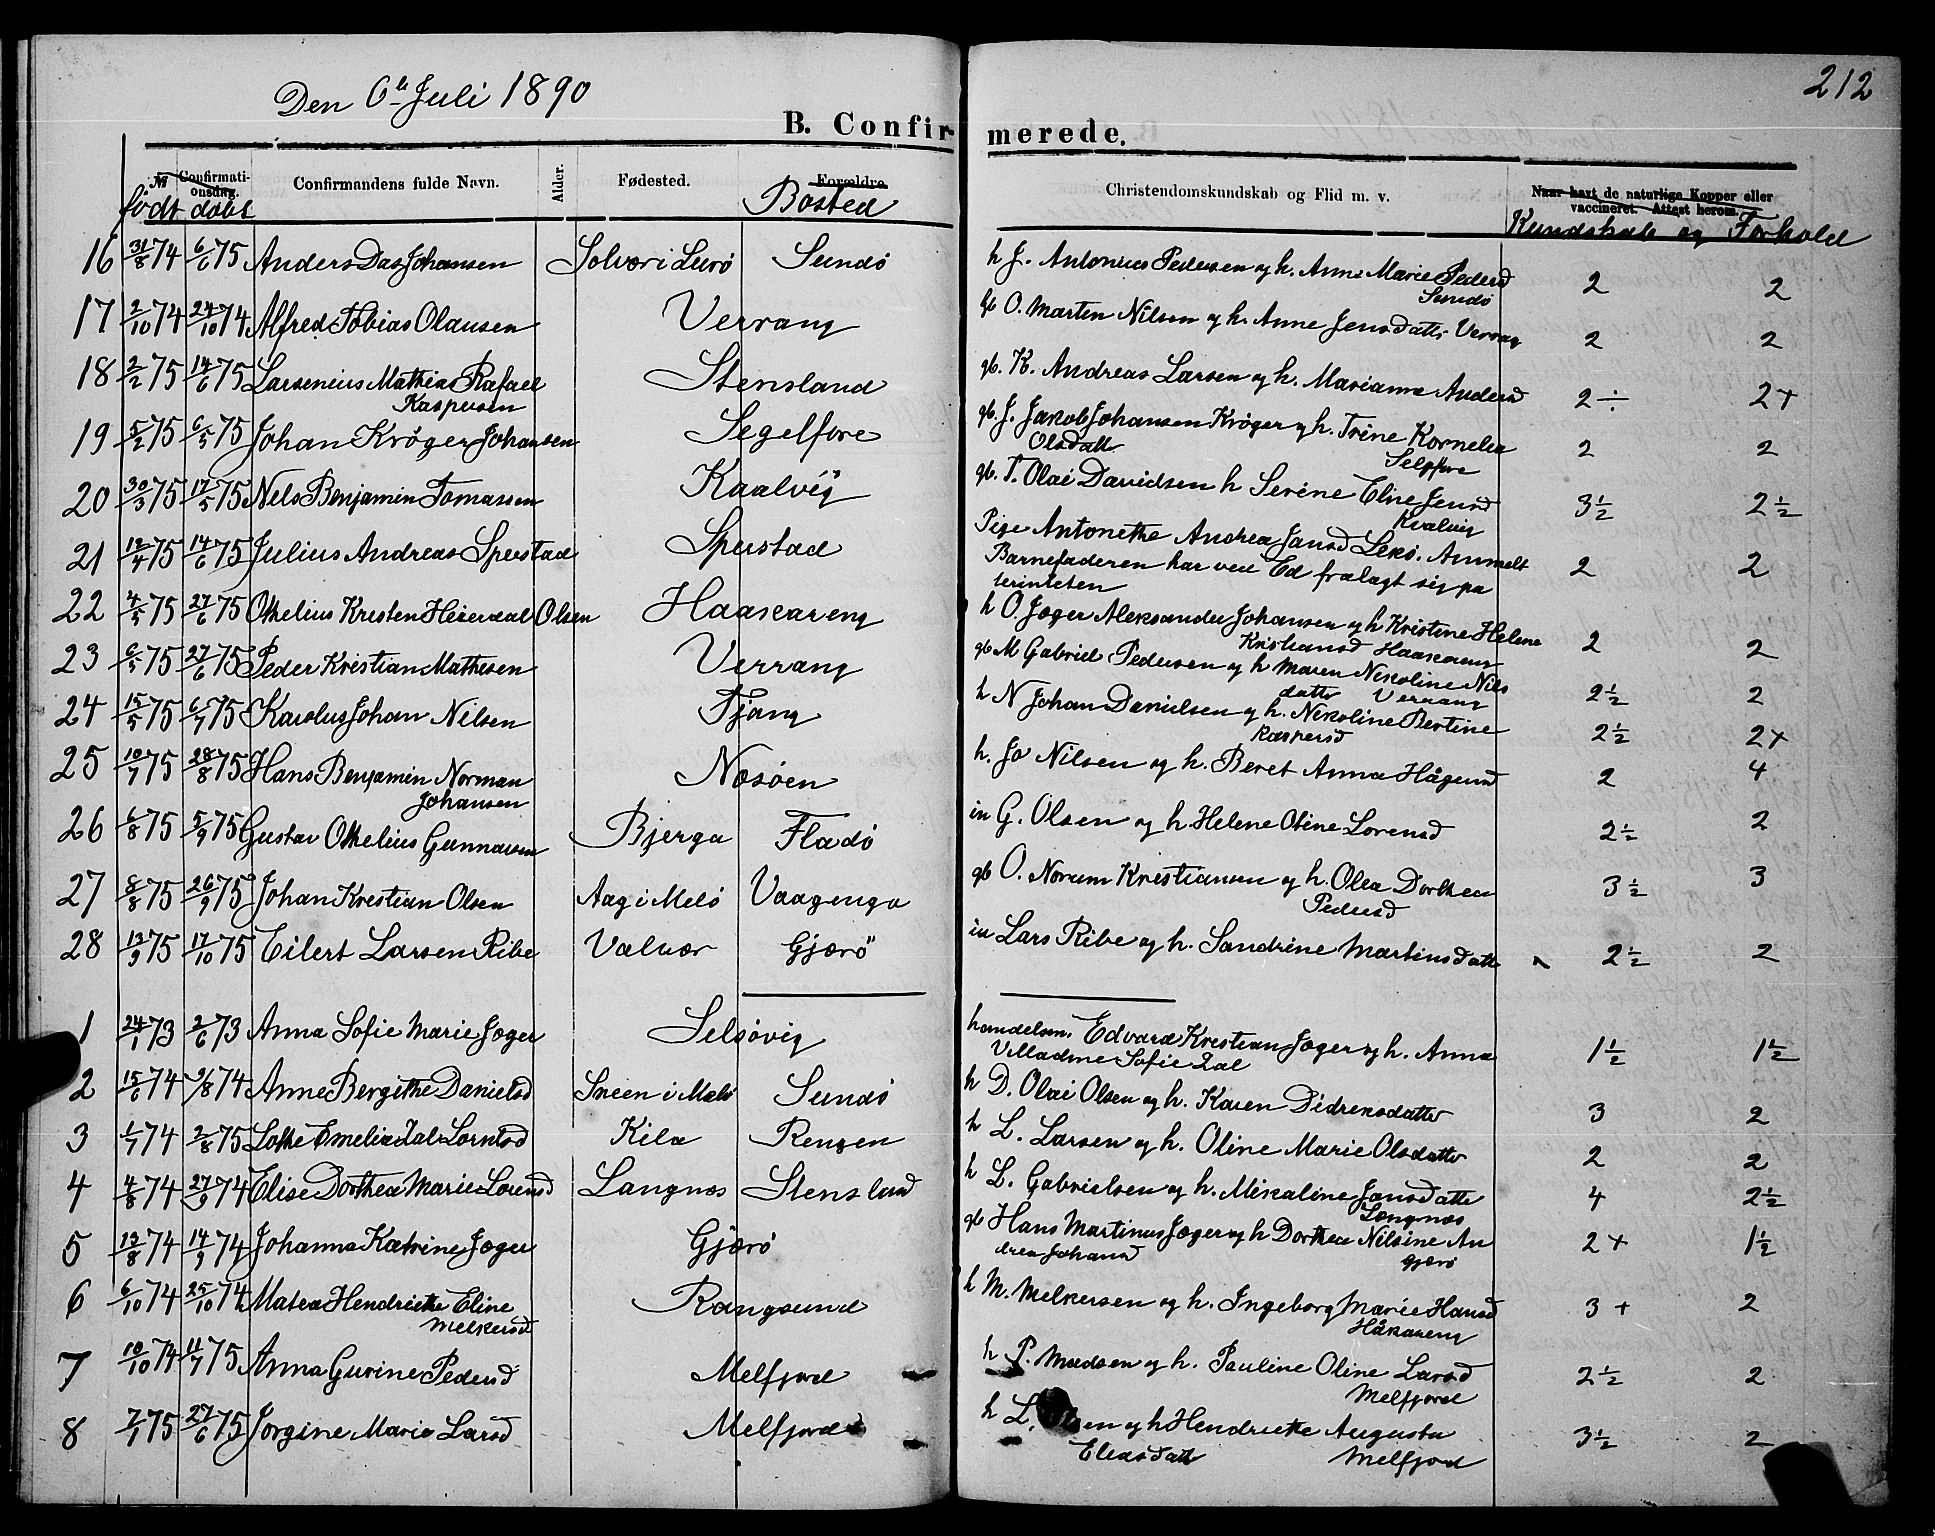 Den 6te Juli 1890
212
B. Confirmerede.
№ Confirmationsdag. Confirmandens fulde Navn. Alder. Fødested. Forældre Christendomskundskab og Flid m. v. Naar havt de naturlige Kopper eller vaccineret. Attest herom.
født døbt Bosted Kundskab og Forhold
16 31/8 74 6/6 75 Anders Das Johansen Solvær i Lurö Sundö h J. Antonius Pedersen og h. Anne Marie Pedersd Sundö 2 2
17 2/10 74 24/10 74 Alfred Tobias Olausen Verrang gb O. Marten Nilsen og h. Anne Jensdatter Verrang 2 2
18 2/2 75 14/6 75 Larsenius Mathias Rafael Kaspersen Stensland gb. K. Andreas Larsen og h. Marianne Andersd 2 ÷ 2+
19 5/2 75 6/5 75 Johan Kröger Johansen Segelfore gb. J. Jakob Johansen Kröger og h. Trine Kornelia Olsdatt 2 2
20 30/3 75 17/5 75 Nils Benjamin Tomassen Kaalvig gb. T. Olai Davidsen h Serine Eline Jensd Kvalvig 3½ 2½
21 12/4 75 14/6 75 Julius Andreas Speustad Speustad Pige Antonethe Andrea Jansd Barnefaderen har ved Ed fralagt sig pa terinteten 2 2
22 4/5 75 27/6 75 Othelius Kristen Heierdal Olsen Haakareng h O. Jæger Aleksander Johansen og h Kristine Helene Kristiansd Haakareng 2 2
23 6/5 75 27/6 75 Peder Kristian Mathisen Verrang gb M Gabriel Pedersen og h Maren Nikoline Nils datter Verrang 2½ 2
24 15/5 75 6/7 75 Karolus Johan Nilsen Tjong h N Johan Danielsen og h. Nikoline Bertine Kaspersd 2½ 2+
25 10/7 75 28/8 75 Hans Benjamin Norman Johansen Nesöen h. Jo Nilsen og h. Beret Anna Hågensd 2 4
26 6/8 75 5/9 75 Gustav Othelius Gunnarsen Bjerga Fladö in G. Olsen og h. Helene Oline Lorensd 2½ 2
27 8/8 75 26/9 75 Johan Kristian Olsen Aag i Melö Vaagenga gb O. Norum Kristiansen og h. Olea Dorthea Pedersd 3½ 3
28 13/9 75 17/10 75 Eilert Larsen Ribe Valvær Gjærö in Lars Ribe og h. Sandrine Martinsdatter 2½ 2
1 24/1 73 2/6 73 Anna Sofie Marie Jæger Selsövig handelsm. Edvard Kristian Jæger og h. Anna Villadine Sofie Zal 1½ 1½
2 15/6 74 2/8 74 Anne Bergithe Danielsd Sneen i Melö Sundö h D. Olai Olsen og h. Karen Didreksdatter 3 2
3 1/7 74 2/8 75 Lothe Emelia Zal Lorntsd Kila Rengen h L. Larsen og h. Oline Marie Olsdatter 2 2
4 4/8 74 27/9 74 Elise Dorthea Marie Lorensd Langnes Stensland h L. Gabrielsen og h. Mikaline Jansdatter Langnes 4 2½
5 13/8 74 14/9 74 Johanna Katrine Jæger Gjærö gb Hans Martinus Jæger og h Dorthea Nilsine An drea Johansd Gjærö 2+ 1½
6 6/10 74 25/10 74 Matea Hendriethe Eline Melkersd Rangsund h M. Melkersen og h. Ingeborg Marie Hansd Håkareng 3+ 2
7 10/10 74 11/7 75 Anna Gurine Pedersd Melfjord h P. Madsen og h. Pauline Oline Larsd Melfjord 2½ 2
8 7/1 75 27/6 75 Jorgine Marie Larsd Melfjord h L. og h Hendriethe Augusta Eliasdatter Melfjord 3½ 2